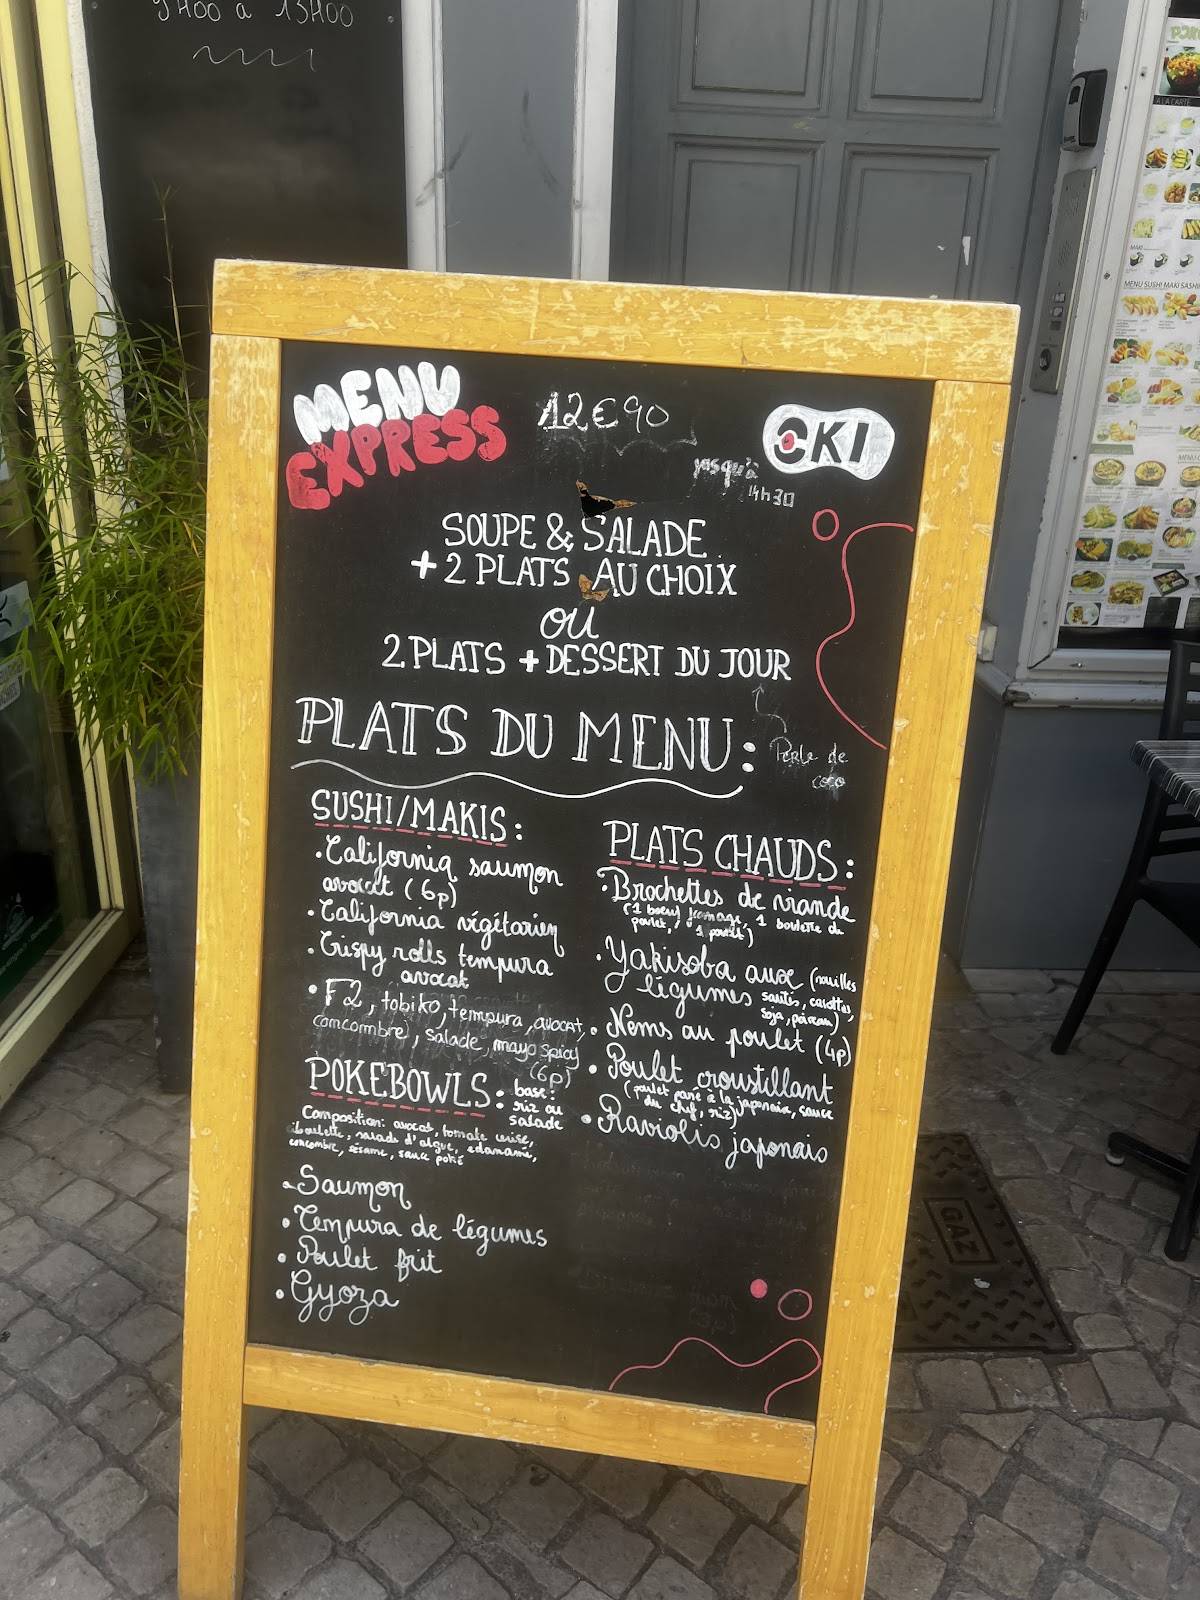 9H00 à 13H00
MENU
EXPRESS
12€90
OKI
jusqu'à
14h30
SOUPE & SALADE
+ 2 PLATS AU CHOIX
ou
2 PLATS + DESSERT DU JOUR
Perle de
coco
PLATS DU MENU:
SUSHI/MAKIS:
• California saumon
avocat (6p)
• California végétarien
• Crispy rolls tempura
avocat
• F2, tobiko, tempura, avocat,
concombre, salade, mayo spicy
(6p)
POKEBOWLS:
base:
riz ou
salade
Composition: avocat, tomate cerise,
ciboulette, salade d'algue, edamame,
concombre, sésame, sauce poké
• Saumon
• Tempura de légumes
• Poulet frit
• Gyoza
PLATS CHAUDS:
• Brochettes de viande
(1 boeuf fromage, 1 boulette de
poulet, 1 poulet)
• Yakisoba aux
légumes
(nouilles
sautés, carottes,
soja, poireau)
• Nems au poulet (4p)
• Poulet croustillant
(poulet pané à la japonaise, sauce
du chef, riz)
• Raviolis japonais
A LA CARTE
MAKI
MENU SUSHI MAKI SASHI
GAZ